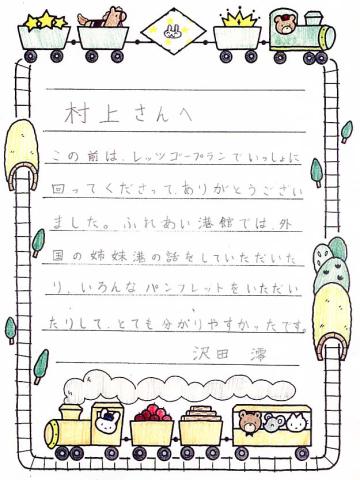 村上さんへ
この前は、レッツゴープランでいっしょに
回ってくださって、ありがとうござい
ました。ふれあい港館では、外
国の姉妹港の話をしていただいた
り、いろんなパンフレットをいただい
たりして、とても分かりやすかったです。
沢田 澪